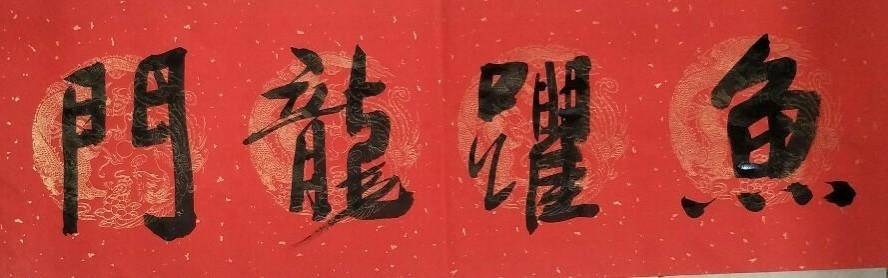 魚躍龍門